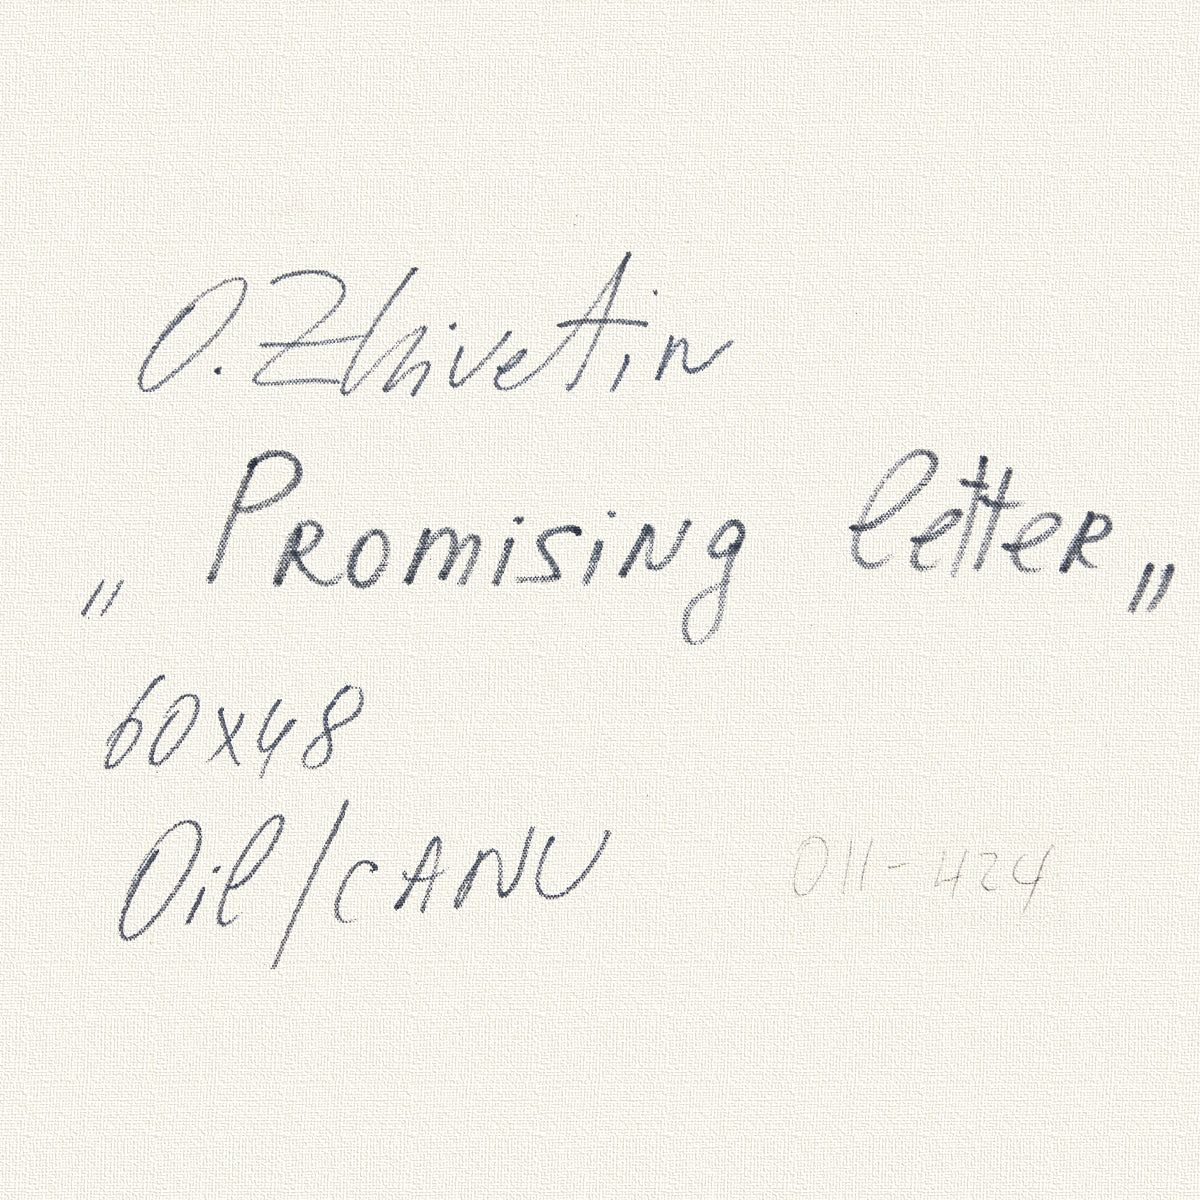 O. Zhivetin
„Promising letter„
60x48
Oil/CANV 011-424